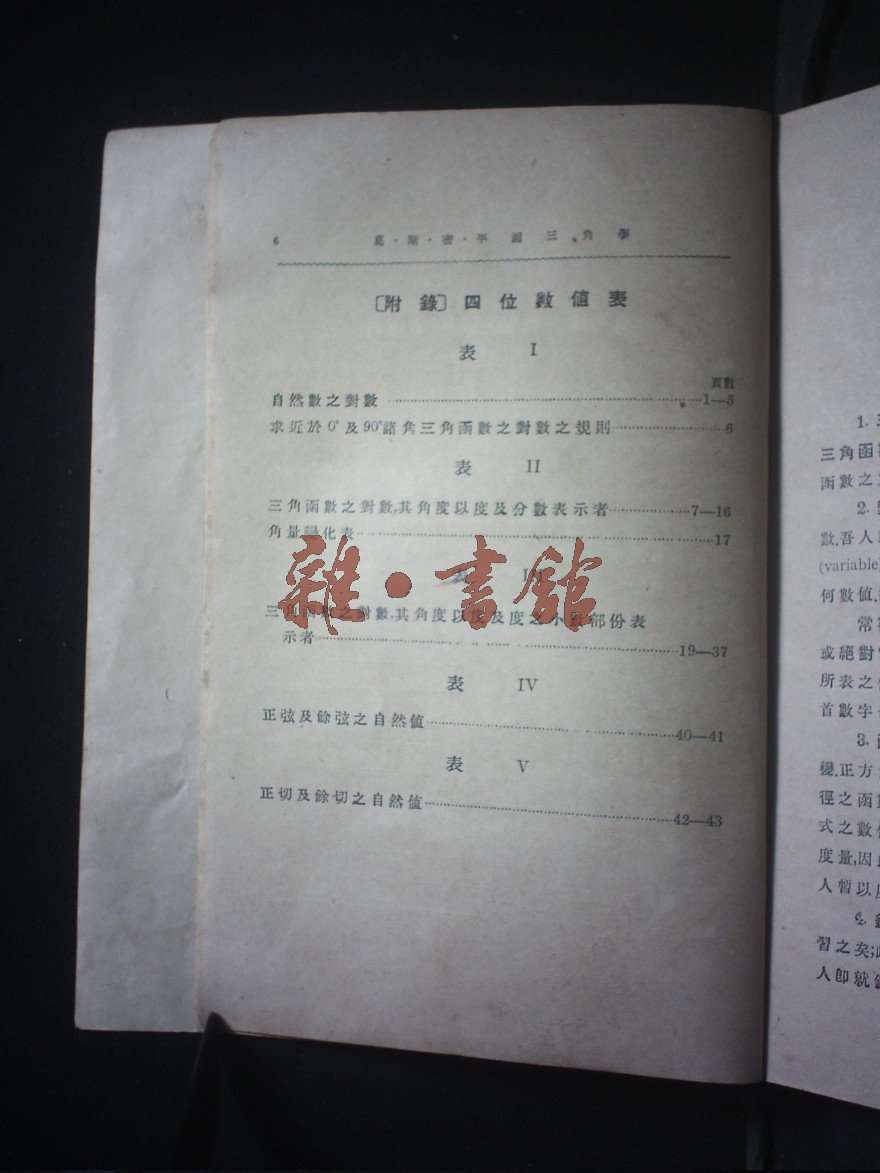 6 葛·斯·密·平面三角學
〔附錄〕四位數值表
表 I
頁數
自然數之對數……1—5
求近於0°及90°諸角三角函數之對數之規則……6
表 II
三角函數之對數,其角度以度及分數表示者……7—16
角量變化表……17
表 III
三角函數之對數,其角度以度及度之小數部份表
示者……19—37
表 IV
正弦及餘弦之自然値……40—41
表 V
正切及餘切之自然値……42—43
雜·書館
1.
三角函
函數之
2.
數,吾人
(variable)
何數值,
常
或絕對
所表之
首數字
3.
變,正方
徑之函
式之數
度量,因
人暫以
4.
習之矣;
人卽就